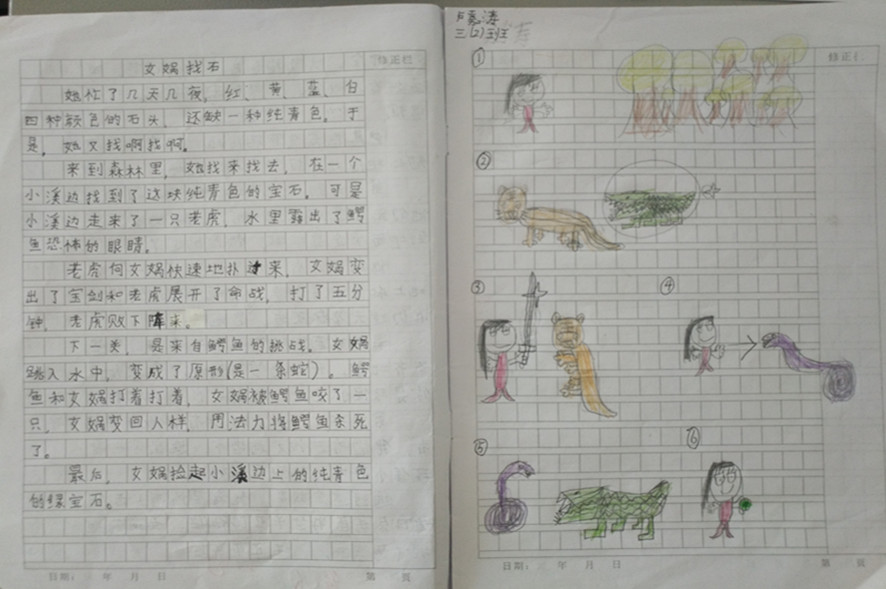 女娲找石
修正栏
她忙了几天几夜，红、黄、蓝、白
四种颜色的石头，还缺一种纯青色。于
是，她又找啊找啊。
来到森林里，她找来找去，在一个
小溪边找到了这块纯青色的宝石。可是
小溪边走来了一只老虎，水里露出了鳄
鱼恐怖的眼睛。
老虎向女娲快速地扑过来，女娲变
出了宝剑和老虎展开了命战，打了五分
钟，老虎败下阵来。
下一关，是来自鳄鱼的挑战。女娲
跳入水中，变成了原形(是一条蛇)。鳄
鱼和女娲打着打着，女娲被鳄鱼咬了一
只，女娲变回人样，用法力将鳄鱼杀死
了。
最后，女娲捡起小溪边上的纯青色
的绿宝石。
日期： 年 月 日
第 页
三(2)班
修正栏
①
②
③
④
⑤
⑥
日期： 年 月 日
第 页